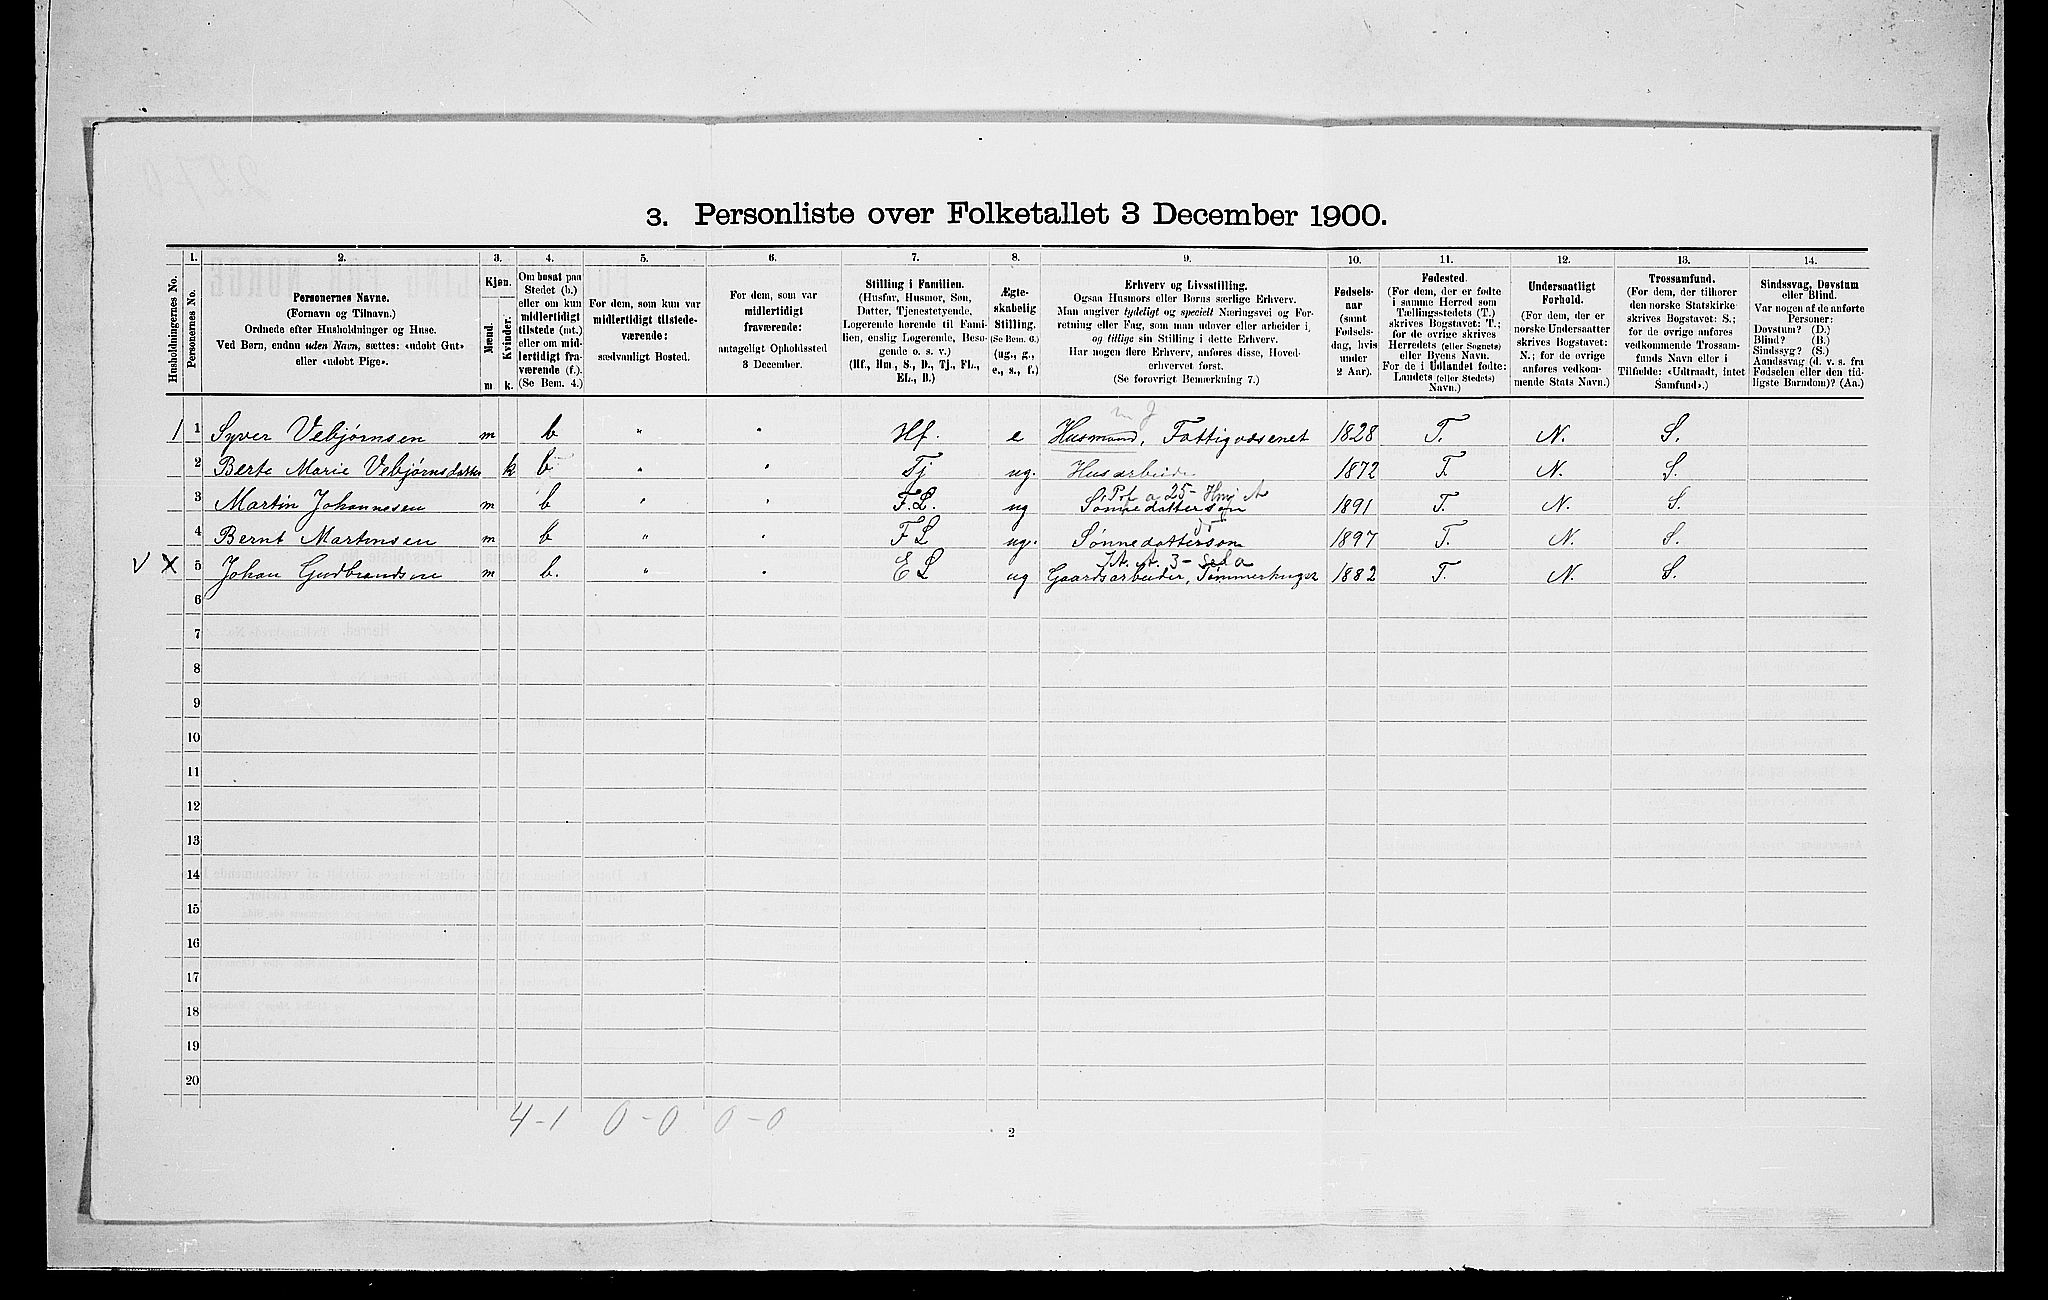 3. Personliste over Folketallet 3 December 1900.
Husholdningernes No.
1.
Personernes No.
2.
Personernes Navne.
(Fornavn og Tilnavn.)
Ordnede efter Husholdninger og Huse.
Ved Børn, endnu uden Navn, sættes: «udøbt Gut»
eller «udøbt Pige».
3.
Kjøn.
Mænd.
Kvinder.
m
k.
4.
Om bosat paa
Stedet (b.)
eller om kun
midlertidigt
tilstede (mt.)
eller om mid-
lertidigt fra-
værende (f.).
(Se Bem. 4.)
5.
For dem, som kun var
midlertidigt tilstede-
værende:
sædvanligt Bosted.
6.
For dem, som var
midlertidigt
fraværende:
antageligt Opholdssted
3 December.
7.
Stilling i Familien.
(Husfar, Husmor, Søn,
Datter, Tjenestetyende,
Logerende hørende til Fami-
lien, enslig Logerende, Besø-
gende o. s. v.)
(Hf., Hm., S., D., Tj., FL.,
EL., B.)
8.
Ægte-
skabelig
Stilling.
(Se Bem. 6.)
(ug., g.,
e., s., f.)
9.
Erhverv og Livsstilling.
Ogsaa Husmors eller Børns særlige Erhverv.
Man angiver tydeligt og specielt Næringsvei og For-
retning eller Fag, som man udøver eller arbeider i,
og tillige sin Stilling i dette Erhverv.
Har nogen flere Erhverv, anføres disse, Hoved-
erhvervet først.
(Se forøvrigt Bemærkning 7.)
10.
Fødsels-
aar
(samt
Fødsels-
dag, hvis
under
2 Aar).
11.
Fødested.
(For dem, der er fødte
i samme Herred som
Tællingsstedets (T.)
skrives Bogstavet: T.;
for de øvrige skrives
Herredets (eller Sognets)
eller Byens Navn.
For de i Udlandet fødte:
Landets (eller Stedets)
Navn.)
12.
Undersaatligt
Forhold.
(For dem, der er
norske Undersaatter
skrives Bogstavet:
N.; for de øvrige
anføres vedkom-
mende Stats Navn.)
13.
Trossamfund.
(For dem, der tilhører
den norske Statskirke
skrives Bogstavet: S.;
for de øvrige anføres
vedkommende Trossam-
funds Navn eller i
Tilfælde: «Udtraadt, intet
Samfund».)
14.
Sindssvag, Døvstum
eller Blind.
Var nogen af de anførte
Personer:
Døvstum? (D.)
Blind? (B.)
Sindssyg? (S.)
Aandssvag (d. v. s. fra
Fødselen eller den tid-
ligste Barndom)? (Aa.)
1 1 Syver Vebjørnsen m b " " Hf. e Husmand, Fattigvæsenet 1828 T. N. S.
2 Berte Marie Vebjørnsdatter k b " " Tj ug. Husarbeide 1872 T. N. S.
3 Martin Johannesen m b " " F.L. ug Sønnedattersøn 1891 T. N. S.
4 Bernt Martinsen m b " " FL ug. Sønnedattersøn 1897 T. N. S.
V X 5 Johan Gudbrandsen m b. " " EL ug Gaardsarbeider, Tømmerhugger 1882 T. N. S.
6
7
8
9
10
11
12
13
14
15
16
17
18
19
20
4-1 0-0 0-0
2